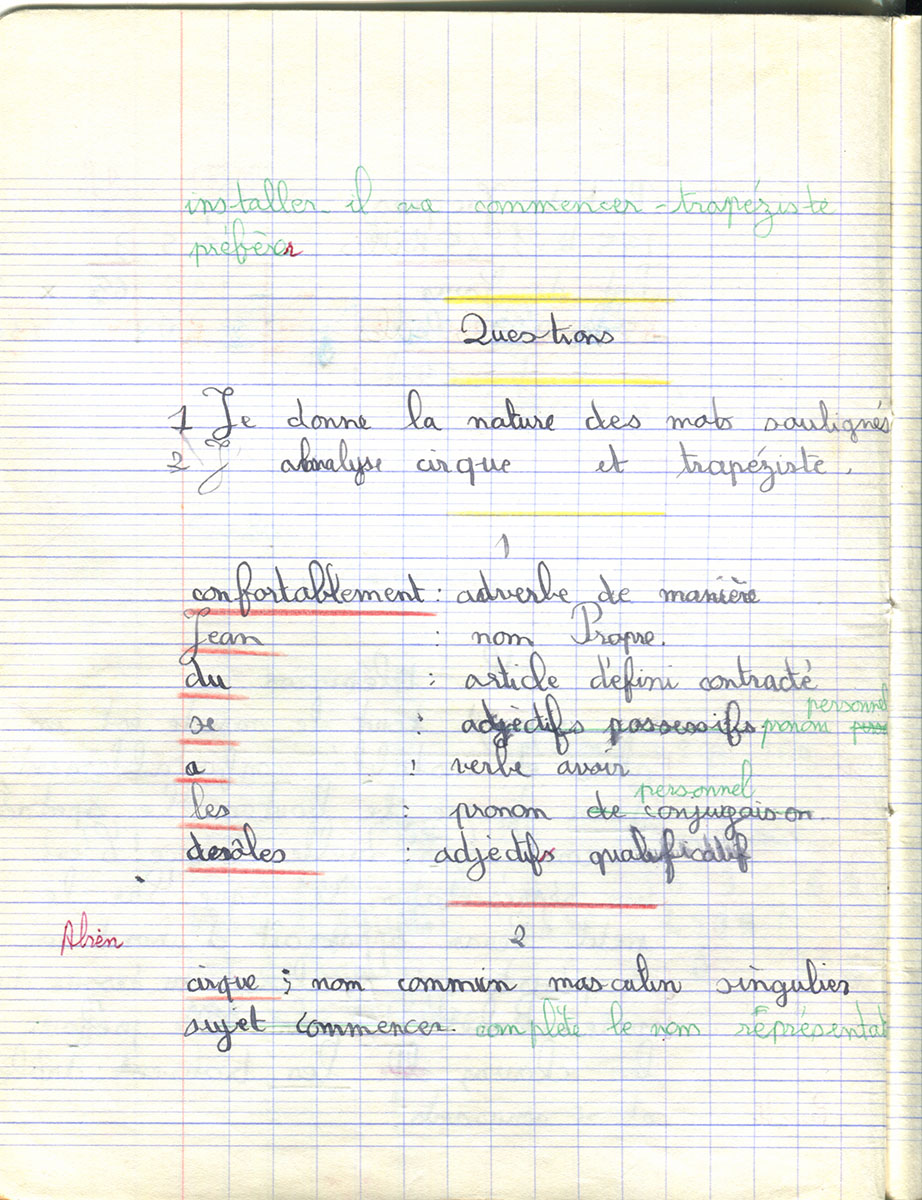 installer - il va commencer - trapéziste
préférer
Questions
1 Je donne la nature des mots soulignés
2 J' analyse cirque et trapéziste.
1
confortablement : adverbe de manière
Jean : nom Propre.
du : article défini contracté
personnel
se : adjèctifs possessifs pronom
a : verbe avoir
personnel
les : pronom de conjugaison.
: adjectifs qualificatif
2
cirque ; nom commun masculin singulier
sujet commencer. complète le nom représentat